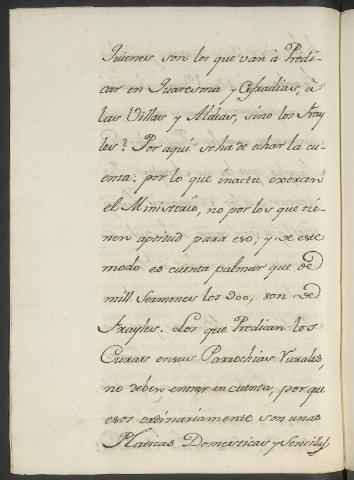 Quienes son los que van à Predi-
car en Quaresma y Cofradias, à
las Villas y Aldeas, sino los fray
les? Por aqui se ha de echar la cu-
enta: por lo que inactu exercen
el Ministerio, no por los que tie-
nen aptitud para eso; y de este
modo es cuenta palmar que de
mill Sermones los 900, son de
frayles. Los que Predican los
Curas en sus Parrochias Rurales,
no deben entrar en cuenta, porque
esos ordinariamente son unas
Platicas Domesticas y Sencillas